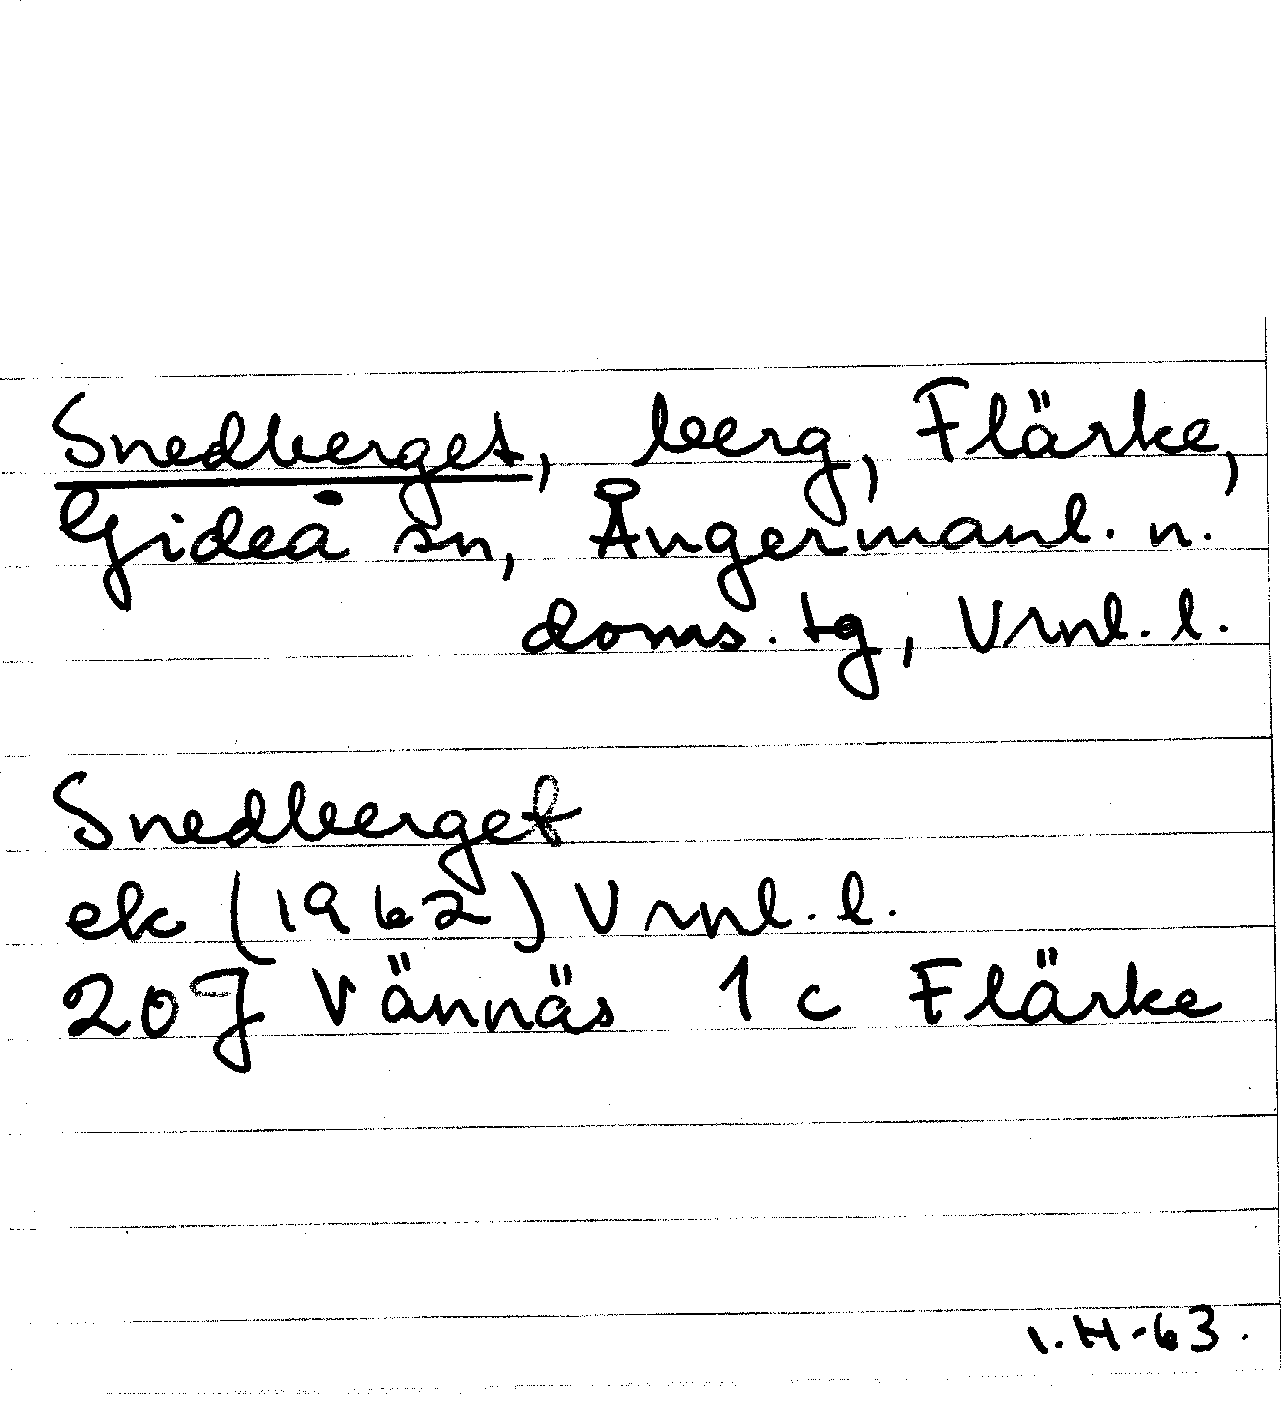 Snedberget, berg, Flärke,
Gideå sn, Ångermanl. n.
doms. tg, Vrnl. l.
Snedberget
ek (1962) Vrnl. l.
20J Vännäs 1 c Flärke
I.H-63.